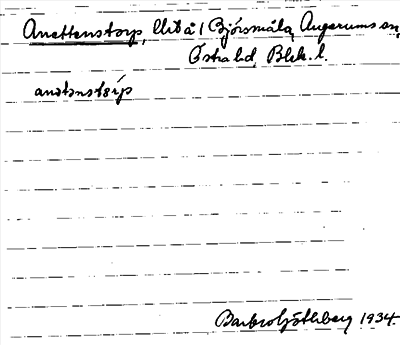 Anettenstorp, lht å 1 Björsmåla Augerums sn,
Östra hd, Blek. l.
anətənstórp
Barbro Göthberg 1934.